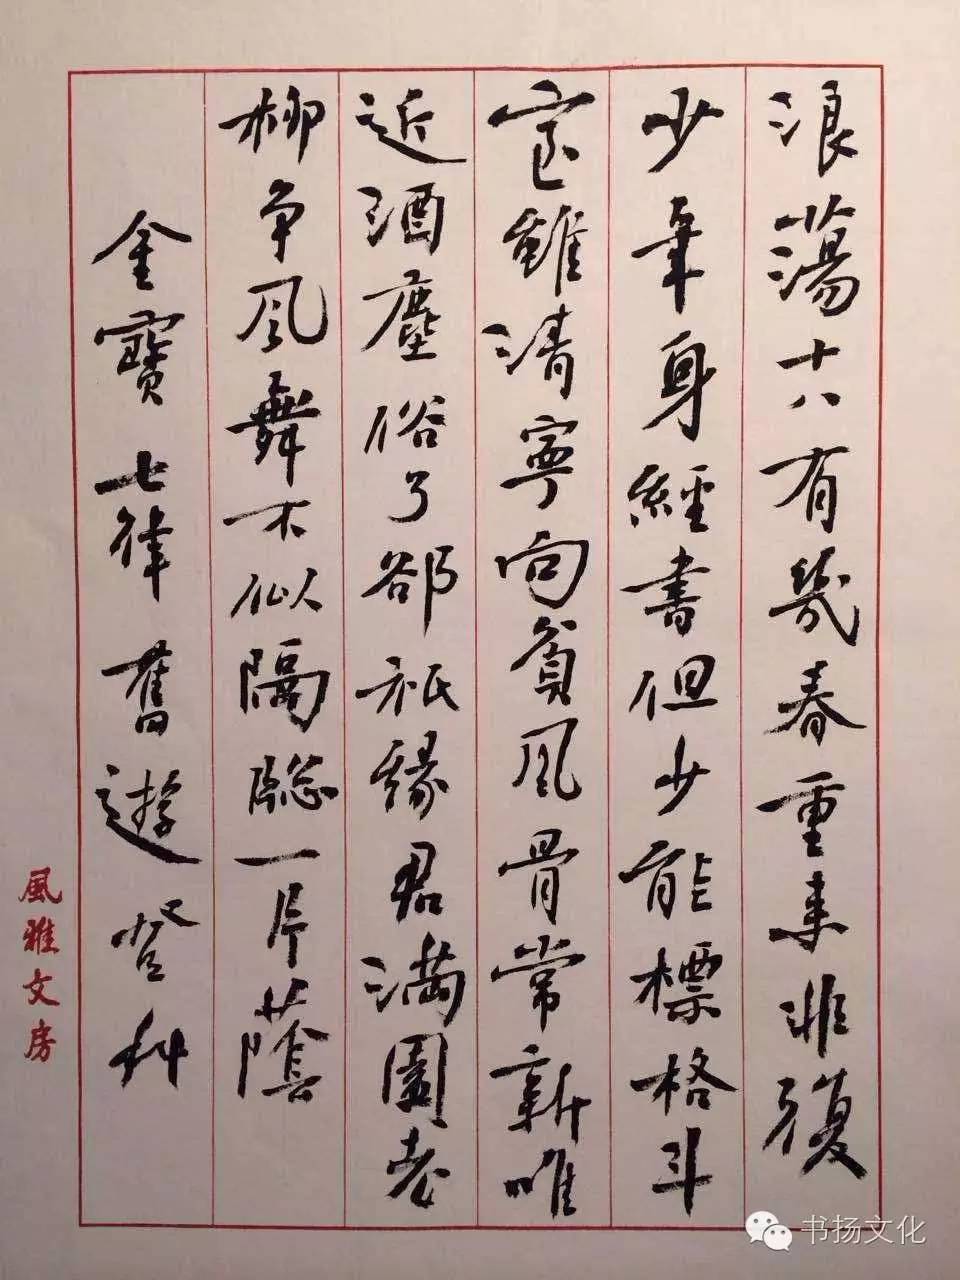 浪蕩十八有幾春重来非復
少年身經書但少能標格斗
室雖清寧向貧風骨常新唯
近酒塵俗了卻祇緣君滿園老
柳争風舞不似隔牕一片蔭
金寶七律舊遊登科
風雅文房
书扬文化